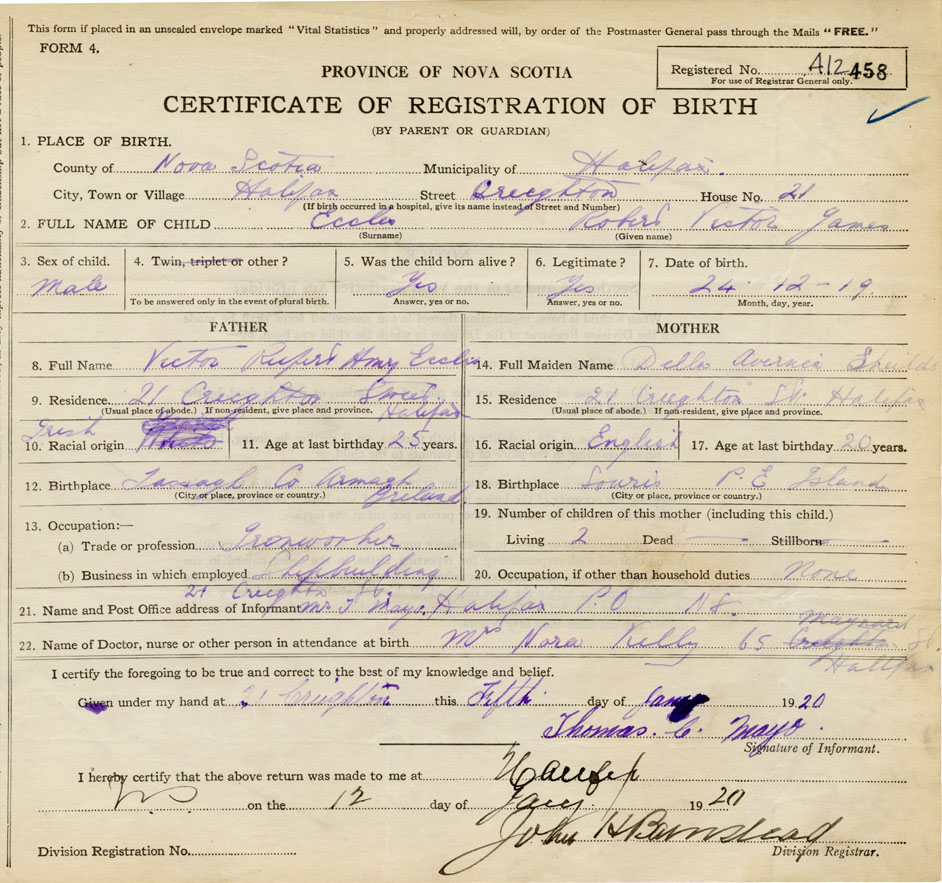 This form if placed in an unsealed envelope marked "Vital Statistics" and properly addressed will, by order of the Postmaster General pass through the Mails "FREE."
FORM 4.
Registered No. A12 458
For use of Registrar General only.
PROVINCE OF NOVA SCOTIA
CERTIFICATE OF REGISTRATION OF BIRTH
(BY PARENT OR GUARDIAN)
1. PLACE OF BIRTH.
County of Nova Scotia Municipality of Halifax.
City, Town or Village Halifax Street Creighton House No. 21
(If birth occurred in a hospital, give its name instead of Street and Number)
2. FULL NAME OF CHILD Eccles Robert Victor James
(Surname) (Given name)
3. Sex of child. 4. Twin, triplet or other? 5. Was the child born alive? 6. Legitimate? 7. Date of birth.
Male Yes Yes 24 - 12 - 19.
To be answered only in the event of plural birth. Answer, yes or no. Answer, yes or no. Month, day, year.
FATHER MOTHER
8. Full Name Victor Rupert Henry Eccles 14. Full Maiden Name Della
9. Residence. 21 Creighton Street Halifax 15. Residence 21 Creighton St. Halifax
(Usual place of abode.) If non-resident, give place and province. (Usual place of abode.) If non-resident, give place and province.
10. Racial origin Irish 11. Age at last birthday 25 years. 16. Racial origin English 17. Age at last birthday 20 years.
12. Birthplace Tassagh Co Armagh Ireland 18. Birthplace Souris P. E Island
(City or place, province or country.) (City or place, province or country.)
13. Occupation:— 19. Number of children of this mother (including this child.)
(a) Trade or profession Ironworker Living 2 Dead — Stillborn —
(b) Business in which employed Shipbuilding 20. Occupation, if other than household duties None
21 Creighton St.
21. Name and Post Office address of Informant Mr T. Mayo, Halifax P.O N.S.
22. Name of Doctor, nurse or other person in attendance at birth Mrs Nora Kelly 65 Creighton Maynard St. Halifax
I certify the foregoing to be true and correct to the best of my knowledge and belief.
Given under my hand at 21 Creighton this Fifth day of Jany 1920
Thomas. C. Mayo.
Signature of Informant.
I hereby certify that the above return was made to me at Halifax
NS on the 12 day of Jany. 1920
John H Barnstead
Division Registrar.
Division Registration No.